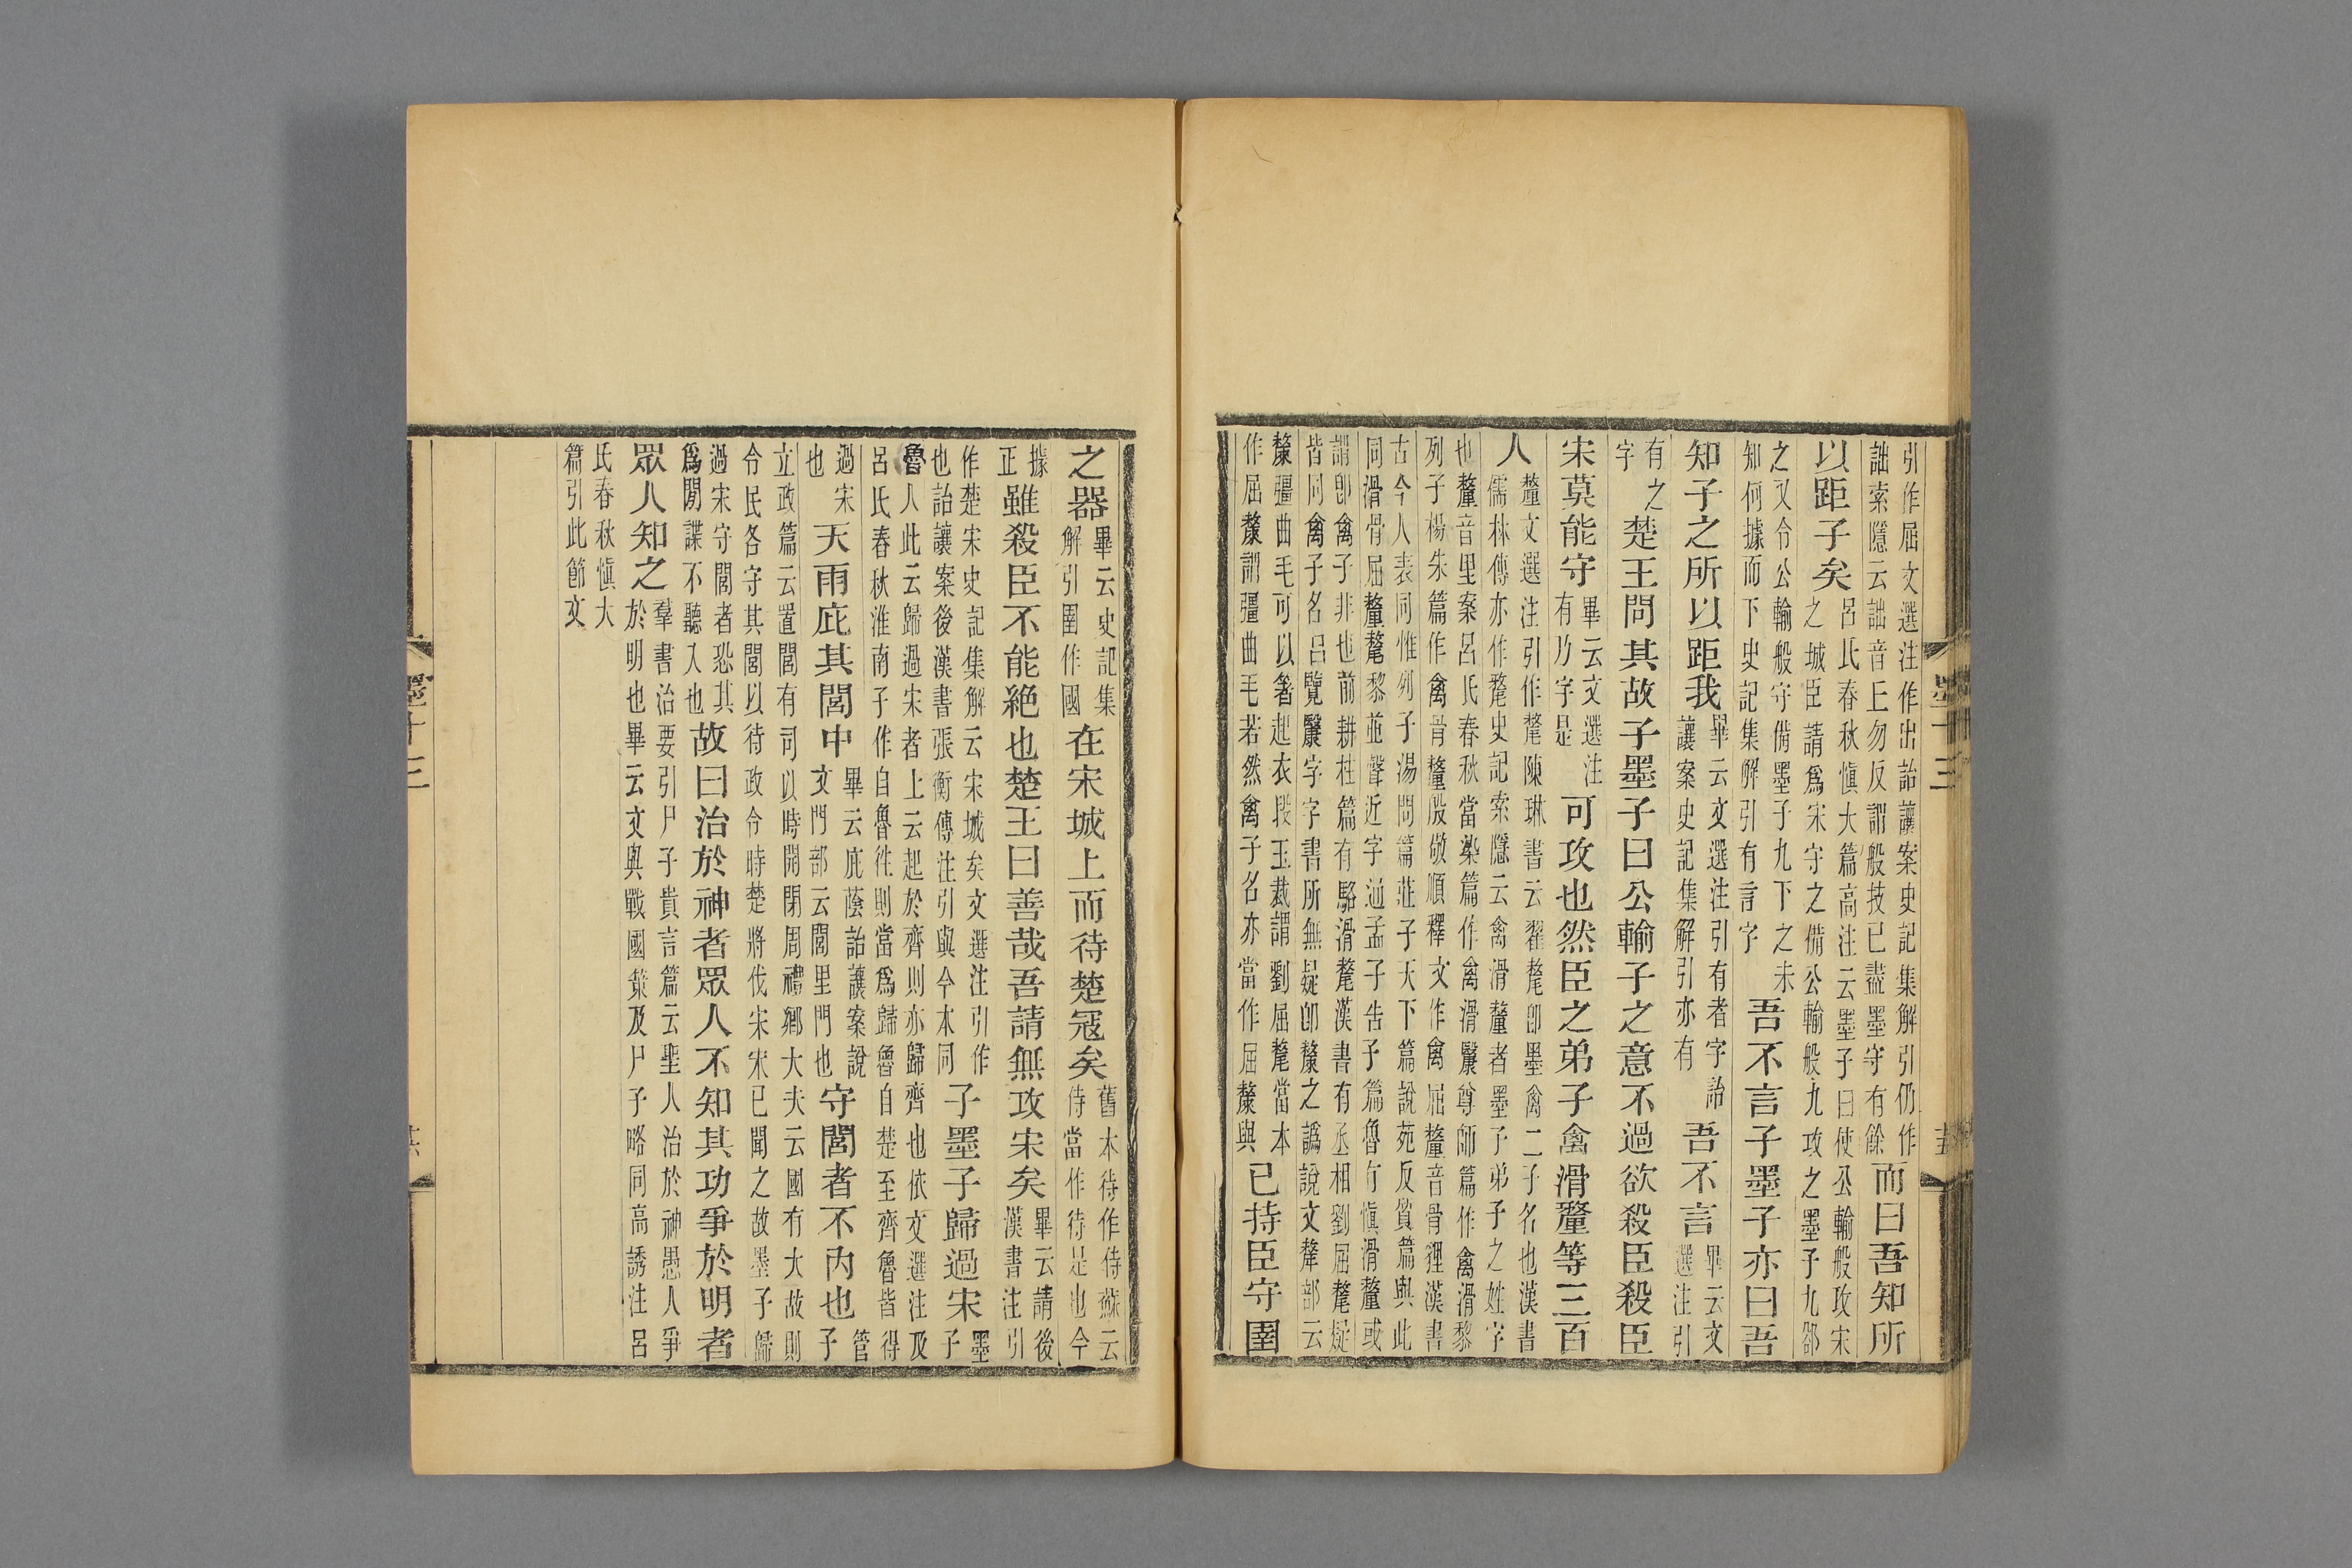 墨十三
引作屈文選注作出詒讓案史記集解引仍作詘索隱云詘音丘勿反謂般技已盡墨守有餘而曰吾知所
以距子矣呂氏春秋愼大篇高注云墨子曰使公輸般攻宋之城臣請爲宋守之備公輸般九攻之墨子九卻
之又令公輸般守備墨子九下之未知何據而下史記集解引有言字吾不言子墨子亦曰吾
知子之所以距我畢云文選注引有者字詒讓案史記集解引亦有吾不言畢云文選注引
有之字楚王問其故子墨子曰公輸子之意不過欲殺臣殺臣
宋莫能守畢云文選注有乃字是可攻也然臣之弟子禽滑釐等三百
人釐文選注引作氂陳琳書云翟氂卽墨禽二子名也漢書儒林傳亦作氂史記索隱云禽滑釐者墨子弟子之姓字
也釐音里案呂氏春秋當染篇作禽滑䰐尊師篇作禽滑黎列子楊朱篇作禽骨釐殷敬順釋文作禽屈釐音骨狸漢書
古今人表同惟列子湯問篇莊子天下篇說苑反質篇與此同滑骨屈釐氂黎並聲近字通孟子告子篇魯有愼滑釐或
謂卽禽子非也前耕柱篇有駱滑氂漢書有丞相劉屈氂疑皆同禽子名呂覽䰐字字書所無疑卽斄之譌說文犛部云
斄彊曲毛可以箸起衣段玉裁謂劉屈氂當本作屈斄謂彊曲毛若然禽子名亦當作屈斄與已持臣守圉
之器畢云史記集解引圉作國在宋城上而待楚寇矣舊本待作侍蘇云侍當作待是也今
據正雖殺臣不能絶也楚王曰善哉吾請無攻宋矣畢云請後漢書注引
作楚宋史記集解云宋城矣文選注引作也詒讓案後漢書張衡傳注引與今本同子墨子歸過宋墨子
魯人此云歸過宋者上云起於齊則亦歸齊也依文選注及呂氏春秋淮南子作自魯往則當爲歸魯自楚至齊魯皆得
過宋也天雨庇其閭中畢云庇蔭詒讓案說文門部云閭里門也守閭者不內也管子
立政篇云置閭有司以時開閉周禮鄉大夫云國有大故則令民各守其閭以待政令時楚將伐宋宋已聞之故墨子歸
過宋守閭者恐其爲閒諜不聽入也故曰治於神者眾人不知其功爭於明者
眾人知之羣書治要引尸子貴言篇云聖人治於神愚人爭於明也畢云文與戰國策及尸子略同高誘注呂
氏春秋愼大篇引此節文
墨十三